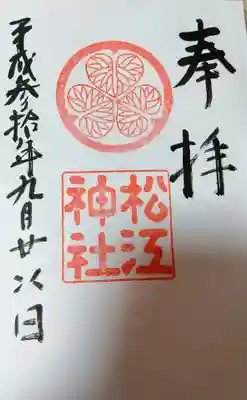 奉拝
松江
神社
平成参拾年九月廿八日